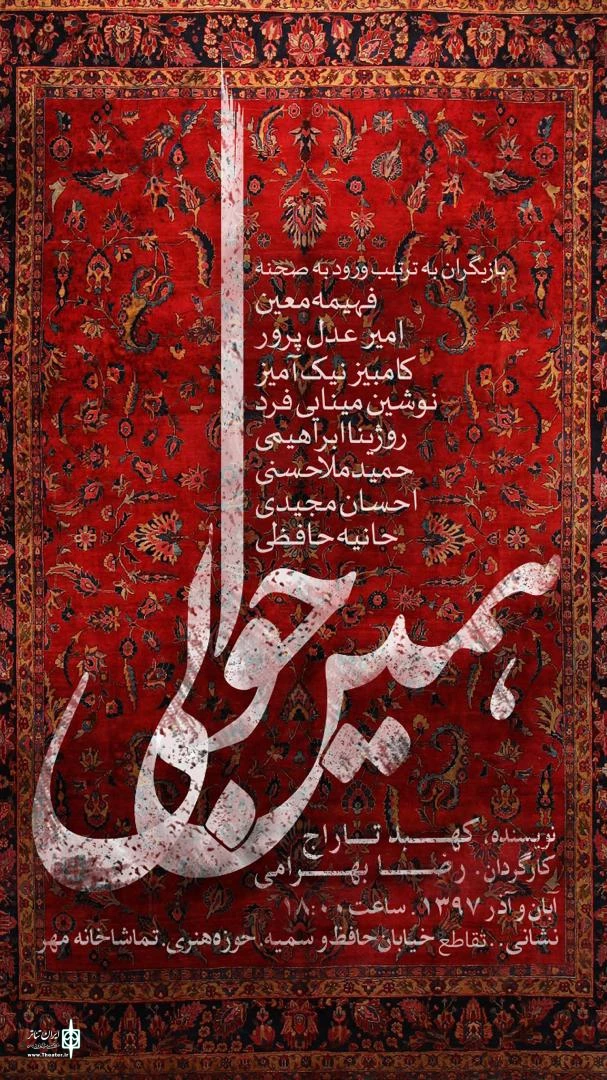 بازیگران به ترتیب ورود به صحنه
فهیمه معین
امیر عدل پرور
کامبیز نیک آمیز
نوشین مینایی فرد
روژینا ابراهیمی
حمید ملاحسنی
احسان مجیدی
حانیه حافظی
همین حوالی
نویسنده، کهبد تاراج
کارگردان. رضا بهرامی
آبان و آذر ۱۳۹۷. ساعت ۱۸:۰۰
نشانی.. تقاطع خیابان حافظ و سمیه. حوزه هنری. تماشاخانه مهر
ایران تئاتر
www.Theater.ir